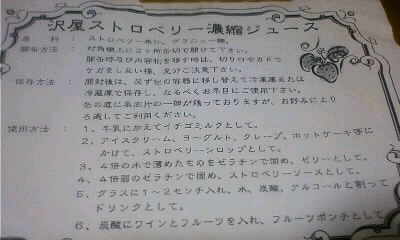 沢屋ストロベリー濃縮ジュース
原料：ストロベリー果汁、グラニュー糖。
開缶方法：対角線上に2ヶ所缶切で開けて下さい。
開缶時及び内容物を移す時は、切り口やカドで
ケガをしない様、充分ご注意下さい。
保存方法：開封後は、必ず他の容器に移し替えて冷凍庫または
冷蔵庫で保存し、なるべくお早目にご使用下さい。
缶の底に果肉片の一部が残っておりますが、お好みにより
ろ過してご利用ください。
使用方法：1、牛乳に加えてイチゴミルクとして。
2、アイスクリーム、ヨーグルト、クレープ、ホットケーキ等に
かけて、ストロベリーシロップとして。
3、4倍の水で薄めたものをゼラチンで固め、ゼリーとして。
4、4倍弱のゼラチンで固め、ストロベリーソースとして。
5、グラスに1〜2センチ入れ、水、炭酸、アルコールと割って
ドリンクとして。
6、炭酸にワインとフルーツを入れ、フルーツポンチとして